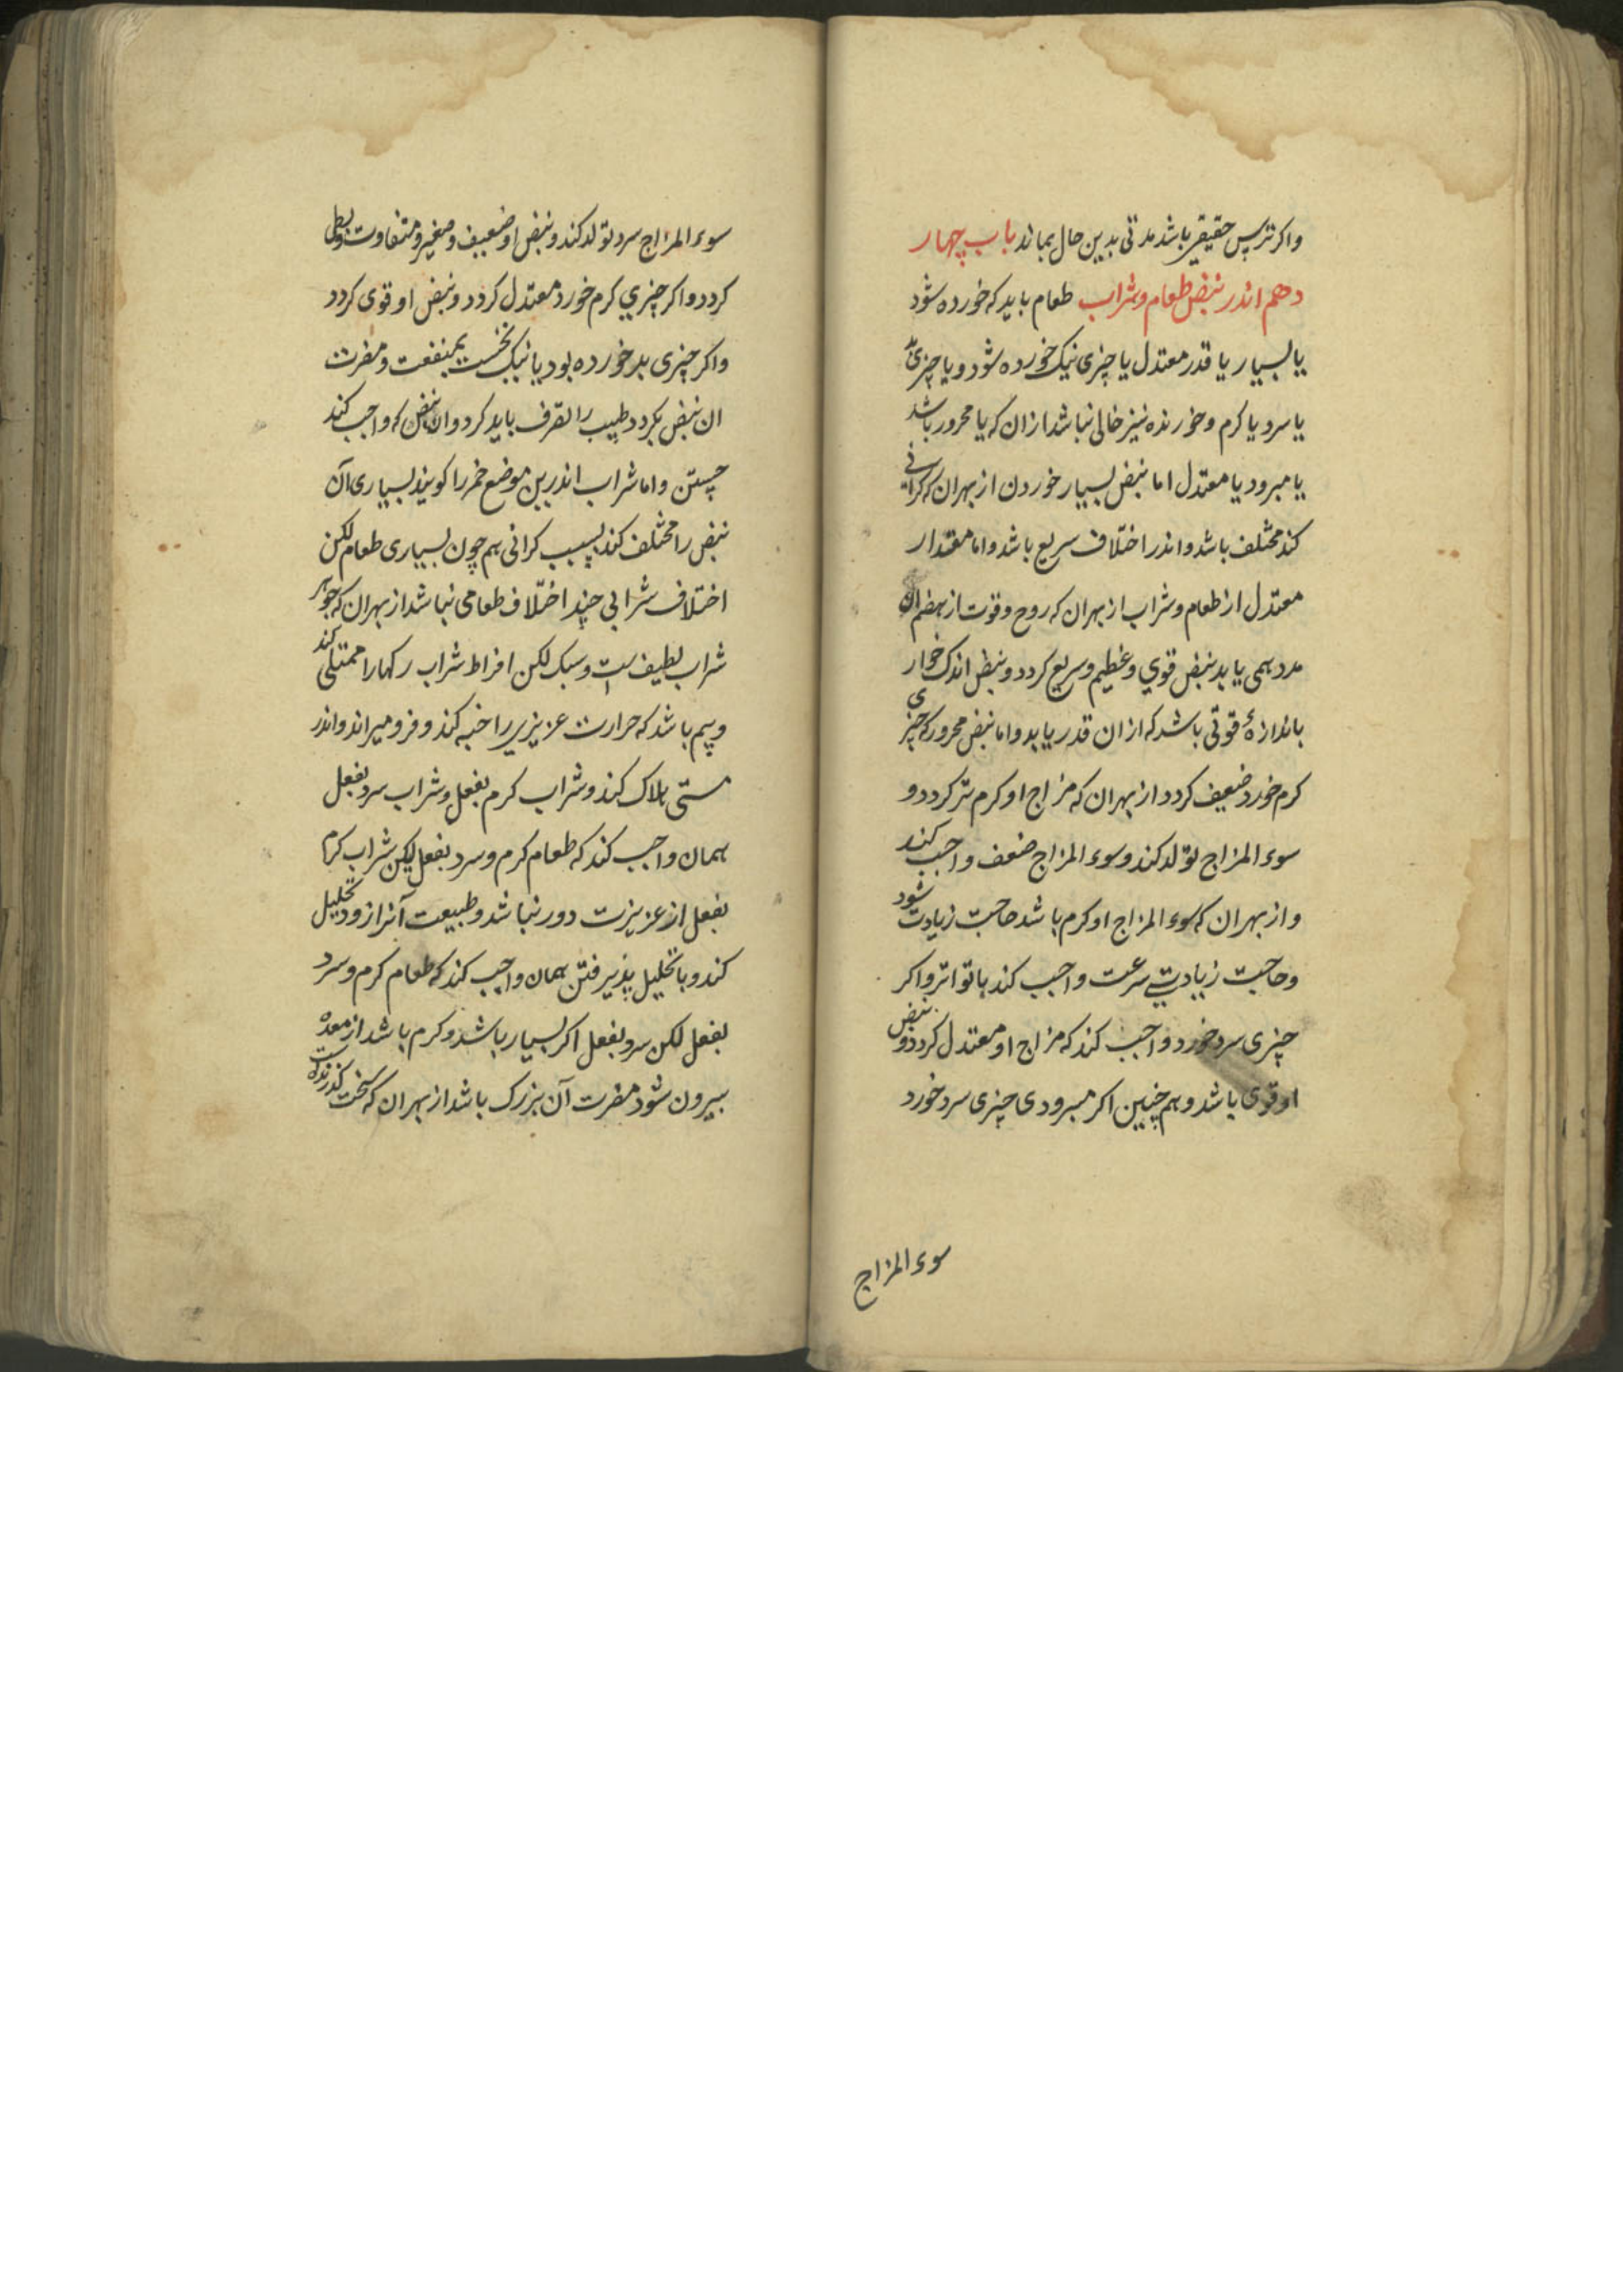 واکر ترس حقیقی باشد مدتی بدین حال بماند باب چهار
دهم اندر نبض طعام و شراب طعام باید که خورده شود
یا بسیار یا قدر معتدل یا چیزی نیک خورده شود و یا چیزی بد
یا سرد یا کرم و خورنده نیز خالی نباشد از ان که یا محرور باشد
یا مبرود یا معتدل اما نبض بسیار خوردن از بهران که کرانی
کند مختلف باشد و اندر اختلاف سریع باشد و اما مقدار
معتدل از طعام و شراب از بهران که روح و قوت از هضم ان
مدد همی یابد نبض قوی و عظیم و سریع کردد و نبض اندک خوار
باندازهٔ قوتی باشد که از ان قدر یابد و اما نبض محرور که چیزی
کرم خورد ضعیف کردد از بهران که مزاج او کرم تر کردد و
سوء المزاج تولد کند و سوء المزاج ضعف واجب کند
و از بهران که سوء المزاج او کرم باشد حاجت زیادت شود
و حاجت زیادتی سرعت واجب کند با تواتر و اکر
چیزی سرد خورد واجب کند که مزاج او معتدل کردد و نبض
او قوی باشد و هم چنین اکر مبرودی چیزی سرد خورد
سوء المزاج
سوء المزاج سرد تولد کند و نبض او ضعیف و صغیر و متفاوت و بطی
کردد و اکر چیزی کرم خورد معتدل کردد و نبض او قوی کردد
واکر چیزی بد خورده بود یا نیک نخست بمنفعت و مضرت
ان نبض بکردد طبیب را تصرف باید کرد و ان نبض که واجب کند
جستن و اما شراب اندرین موضع خمر را کویند بسیاری آن
نبض را مختلف کند بسبب کرانی هم چون بسیاری طعام لکن
اختلاف شرابی چند اختلاف طعامی نباشد از بهران که جوهر
شراب لطیف است و سبک لکن افراط شراب رکها را ممتلی کند
و بیم باشد که حرارت عزیزی را خبه کند و فرو میراند و اندر
مستی هلاک کند و شراب کرم بفعل و شراب سرد بفعل
همان واجب کند که طعام کرم و سرد بفعل لیکن شراب کرم
بفعل از عزیزت دور نباشد و طبیعت آنرا زود تحلیل
کند و با تحلیل پذیرفتن همان واجب کند که طعام کرم و سرد
بفعل لکن سرد بفعل اکر بسیار باشد و کرم باشد از معده
بیرون شود مضرت آن بزرک باشد از بهران که سخت کذرنده است